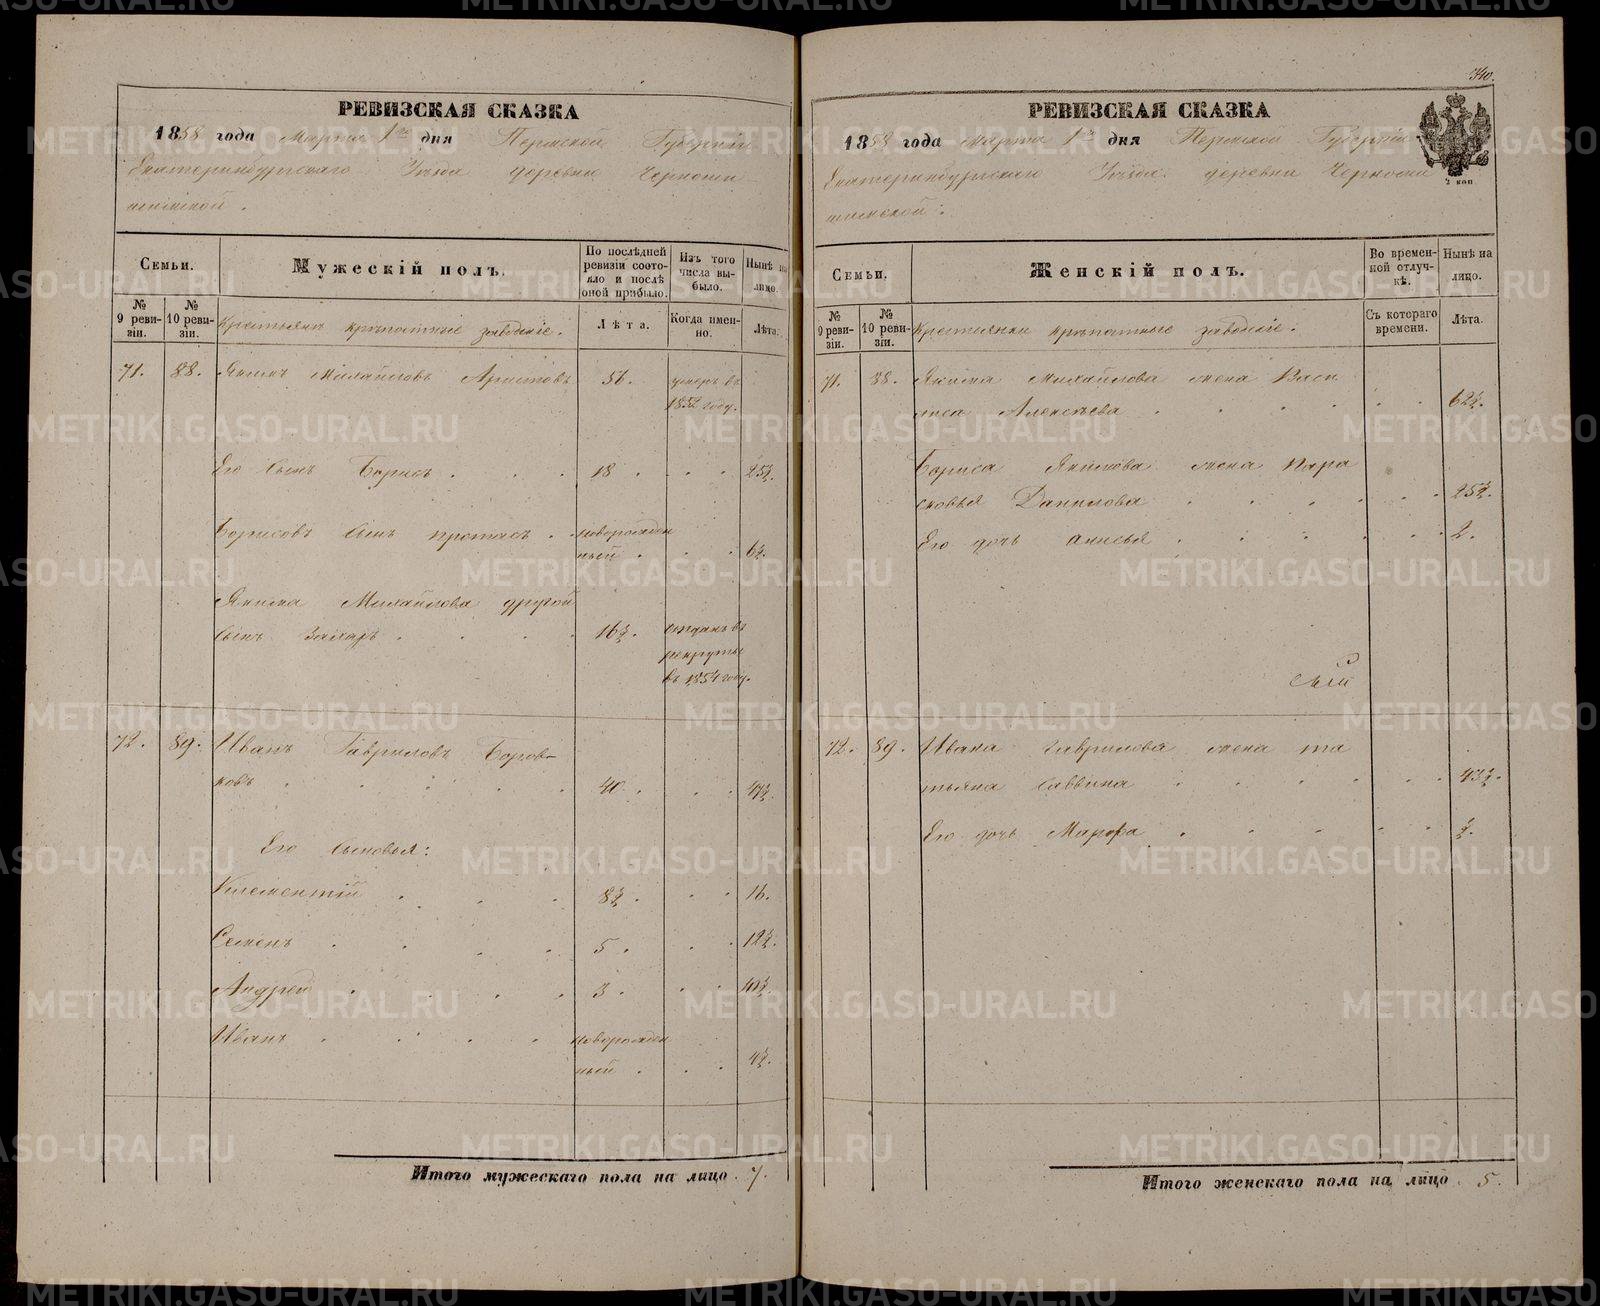 РЕВИЗСКАЯ СКАЗКА
1858 года Марта 1го дня Пермской Губернии
Екатеринбургскаго Уѣзда деревни Черноши
шимской.
Семьи.
№ 9 ревизіи.
№ 10 ревизіи.
Мужескій полъ.
По послѣдней
ревизіи состо-
яло и послѣ
оной прибыло.
Изъ того
числа вы-
было.
Нынѣ на
лицо.
Крестьянъ крѣпостные заводскіе.
Лѣта.
Когда имен-
но.
Лѣта.
71. 88. Якимъ Михайловъ Аристовъ 56. умеръ въ
1852 году.
Его сынъ Борисъ 18 25½.
Борисовъ сынъ Протасъ новорожден
ный 6½.
Якима Михайлова другой
сынъ Захаръ 16½. отданъ въ
рекруты
въ 1854 году.
72. 89. Иванъ Гавриловъ Боров-
ковъ 40. 47½.
Его сыновья:
Климентій 8½. 16.
Семенъ 5. 12½.
Андрей 3. 10½.
Иванъ новорожден
ный 4½.
Итого мужескаго пола на лицо 7.
340.
РЕВИЗСКАЯ СКАЗКА
1858 года Марта 1го дня Пермской Губерніи
Екатеринбургскаго Уѣзда деревни Черноши
шимской.
2 коп
Семьи.
№ 9 ревизіи.
№ 10 ревизіи.
Женскій полъ.
Во времен-
ной отлуч-
кѣ.
Нынѣ на
лицо.
Крестьянки крѣпостные заводскіе.
Съ котораго
времени.
Лѣта.
71. 88. Якима Михайлова жена Васи
лиса Алексѣева 62½.
Бориса Якимова жена Пара
сковья Данилова 25½.
Его дочь Анисья 2.
72. 89. Ивана Гаврилова жена Та
тьяна Саввина 43½.
Его дочь Марфа ½.
Итого женскаго пола на лицо 5.
METRIKI.GASO-URAL.RU